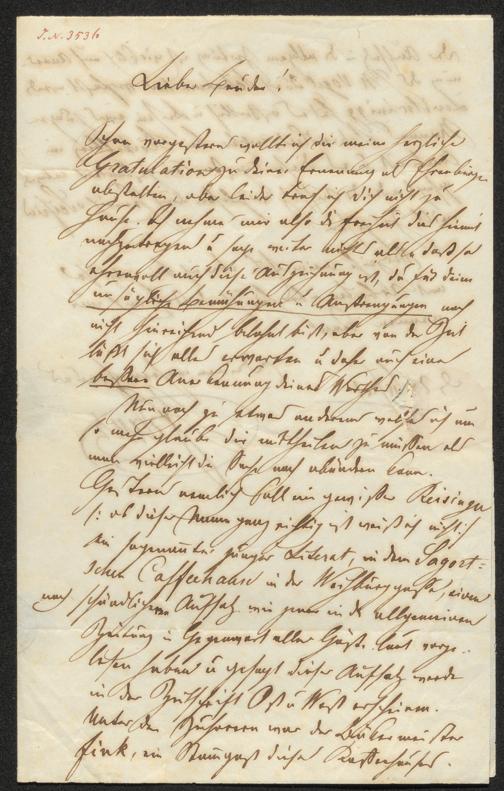 I.N. 3536
Lieber Freund!
Schon vorgestern wollte ich dir meine herzliche
Gratulation zu deiner Ernennung als Ehrenbürger
abstatten, aber leider traf ich dich nicht zu
Hause. Ich nehme mir also die Freiheit dies hiemit
nachzutragen u sage weiter nichts als daß so
ehrenvoll auch diese Auszeichnung ist, du für deine
unsäglichen Bemühungen u Anstrengungen noch
nicht hinreichend belohnt bist, aber von der Zeit
läßt sich alles erwarten u daher auch eine
bessere Anerkennung deines Werthes.
Nun noch zu etwas anderem welches ich um
so mehr glaube dir mittheilen zu müssen als
man vielleicht die Sache noch abändern kann.
Gestern nemlich soll ein gewisser Reisinger
/: ob dieser Name ganz richtig ist weiß ich nicht :/
ein sogenannter junger Literat, in dem Sagort=
schen Caffehause in der Weihburggasse, einen
noch schändlicheren Aufsatz wie jener in der allgemeinen
Zeitung in Gegenwart aller Gäste laut vorge-
lesen haben u gesagt dieser Aufsatz werde
in der Zeitschrift Ost u West erscheinen.
Unter den Zuhörern war der Bäckermeister
Fink, ein Stammgast dieses Kaffeehauses.